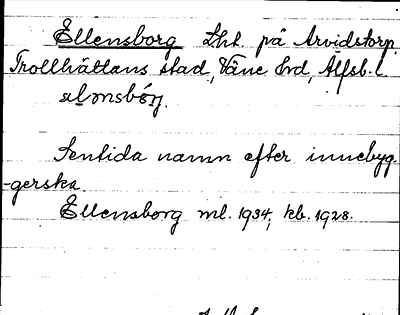 Ellensborg Lht. på Arvidstorp
Trollhättans stad, Väne hd, Älfsb. l.
Sentida namn efter innebyg-
gerska.
Ellensborg ml. 1934, kb. 1928.